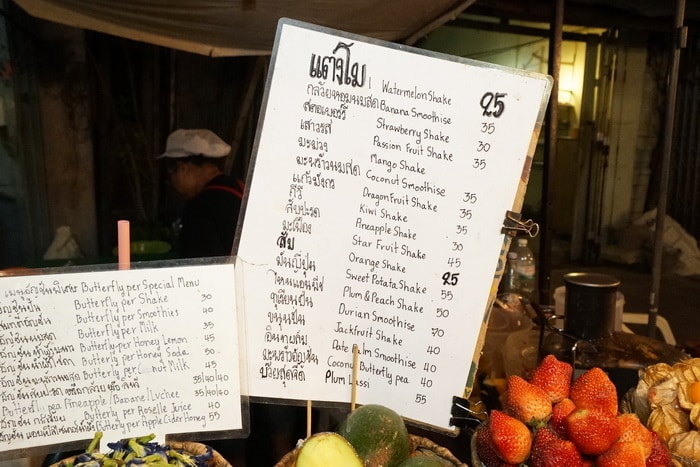 แตงโม Watermelon Shake 25
กล้วยหอมนมสด Banana Smoothise 35
สตอเบอร์รี่ Strawberry Shake 30
เสาวรส Passion Fruit Shake 35
มะม่วง Mango Shake
มะพร้าวนมสด Coconut Smoothise 35
แก้วมังกร Dragon Fruit Shake 40
กีวี Kiwi Shake 50
สับปะรด Pineapple Shake 30
มะเฟือง Star Fruit Shake 45
ส้ม Orange Shake 25
มันญี่ปุ่น Sweet Potata Shake 55
Plum & Peach Shake 50
ทุเรียนปั่น Durian Smoothise 70
ขนุนปั่น Jackfruit Shake 40
อินทผลัม Date Palm Smoothise 40
มะพร้าวอัญชัน Coconut Butterfly pea 40
Plum Lassi 55
Butterfly per Special Menu
Butterfly per Shake 30
Butterfly per Smoothies 40
Butterfly per Milk 50
Butterfly per Honey Lemon 40
Butterfly per Honey Soda 50
Milk 40
Pineapple / Banane / Lychee 35/40/40
Butterfly per Roselle Juice 40
Butterfly per Apple Cider Honey 55